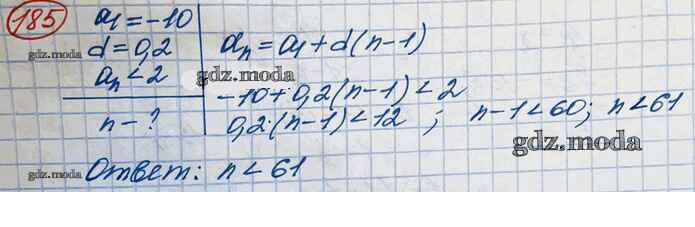 185
a₁ = -10
d = 0,2
aₙ < 2
n - ?
aₙ = a₁ + d(n-1)
-10 + 0,2(n-1) < 2
0,2·(n-1) < 12 ; n-1 < 60; n < 61
Ответ: n < 61
gdz.moda
gdz.moda
gdz.moda
gdz.moda
gdz.moda